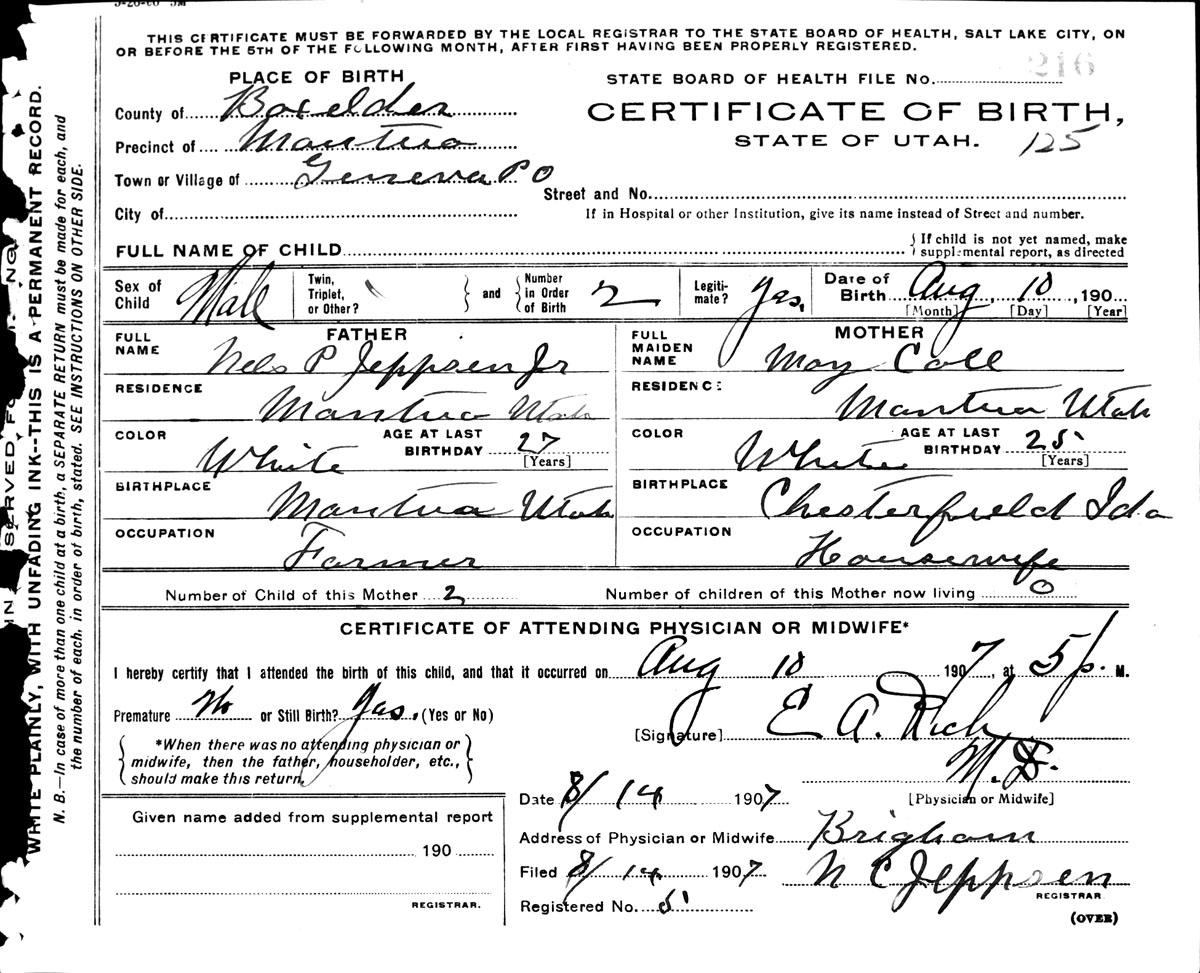 THIS CERTIFICATE MUST BE FORWARDED BY THE LOCAL REGISTRAR TO THE STATE BOARD OF HEALTH, SALT LAKE CITY, ON
OR BEFORE THE 5TH OF THE FOLLOWING MONTH, AFTER FIRST HAVING BEEN PROPERLY REGISTERED.
PLACE OF BIRTH
STATE BOARD OF HEALTH FILE No. 216
County of Boxelder
CERTIFICATE OF BIRTH,
Precinct of Mantua
STATE OF UTAH. 125
Town or Village of Geneva P O
Street and No.
City of
If in Hospital or other Institution, give its name instead of Street and number.
FULL NAME OF CHILD
{ If child is not yet named, make
supplemental report, as directed
Sex of Child Male
Twin, Triplet, or Other? } and { Number in Order of Birth 2
Legitimate? Yes,
Date of Birth Aug 10, 190
[Month] [Day] [Year]
FATHER
MOTHER
FULL NAME Nels P Jeppsen Jr
FULL MAIDEN NAME May Call
RESIDENCE Mantua Utah
RESIDENCE Mantua Utah
COLOR White AGE AT LAST BIRTHDAY 27 [Years]
COLOR White AGE AT LAST BIRTHDAY 25 [Years]
BIRTHPLACE Mantua Utah
BIRTHPLACE Chesterfield Ida
OCCUPATION Farmer
OCCUPATION Housewife
Number of Child of this Mother 2 Number of children of this Mother now living 0
CERTIFICATE OF ATTENDING PHYSICIAN OR MIDWIFE*
I hereby certify that I attended the birth of this child, and that it occurred on Aug 10 1907, at 5 p. M.
Premature No or Still Birth? Yas, (Yes or No)
[Signature] E A. Rich
M. D.
[Physician or Midwife]
{ *When there was no attending physician or
midwife, then the father, householder, etc.,
should make this return. }
Date 8/14 1907
Given name added from supplemental report
Address of Physician or Midwife Brigham
190
Filed 8/14 1907 N C Jeppsen
REGISTRAR
REGISTRAR.
Registered No. 5
(OVER)
WRITE PLAINLY, WITH UNFADING INK--THIS IS A PERMANENT RECORD.
N. B.—In case of more than one child at a birth, a SEPARATE RETURN must be made for each, and
the number of each, in order of birth, stated. SEE INSTRUCTIONS ON OTHER SIDE.